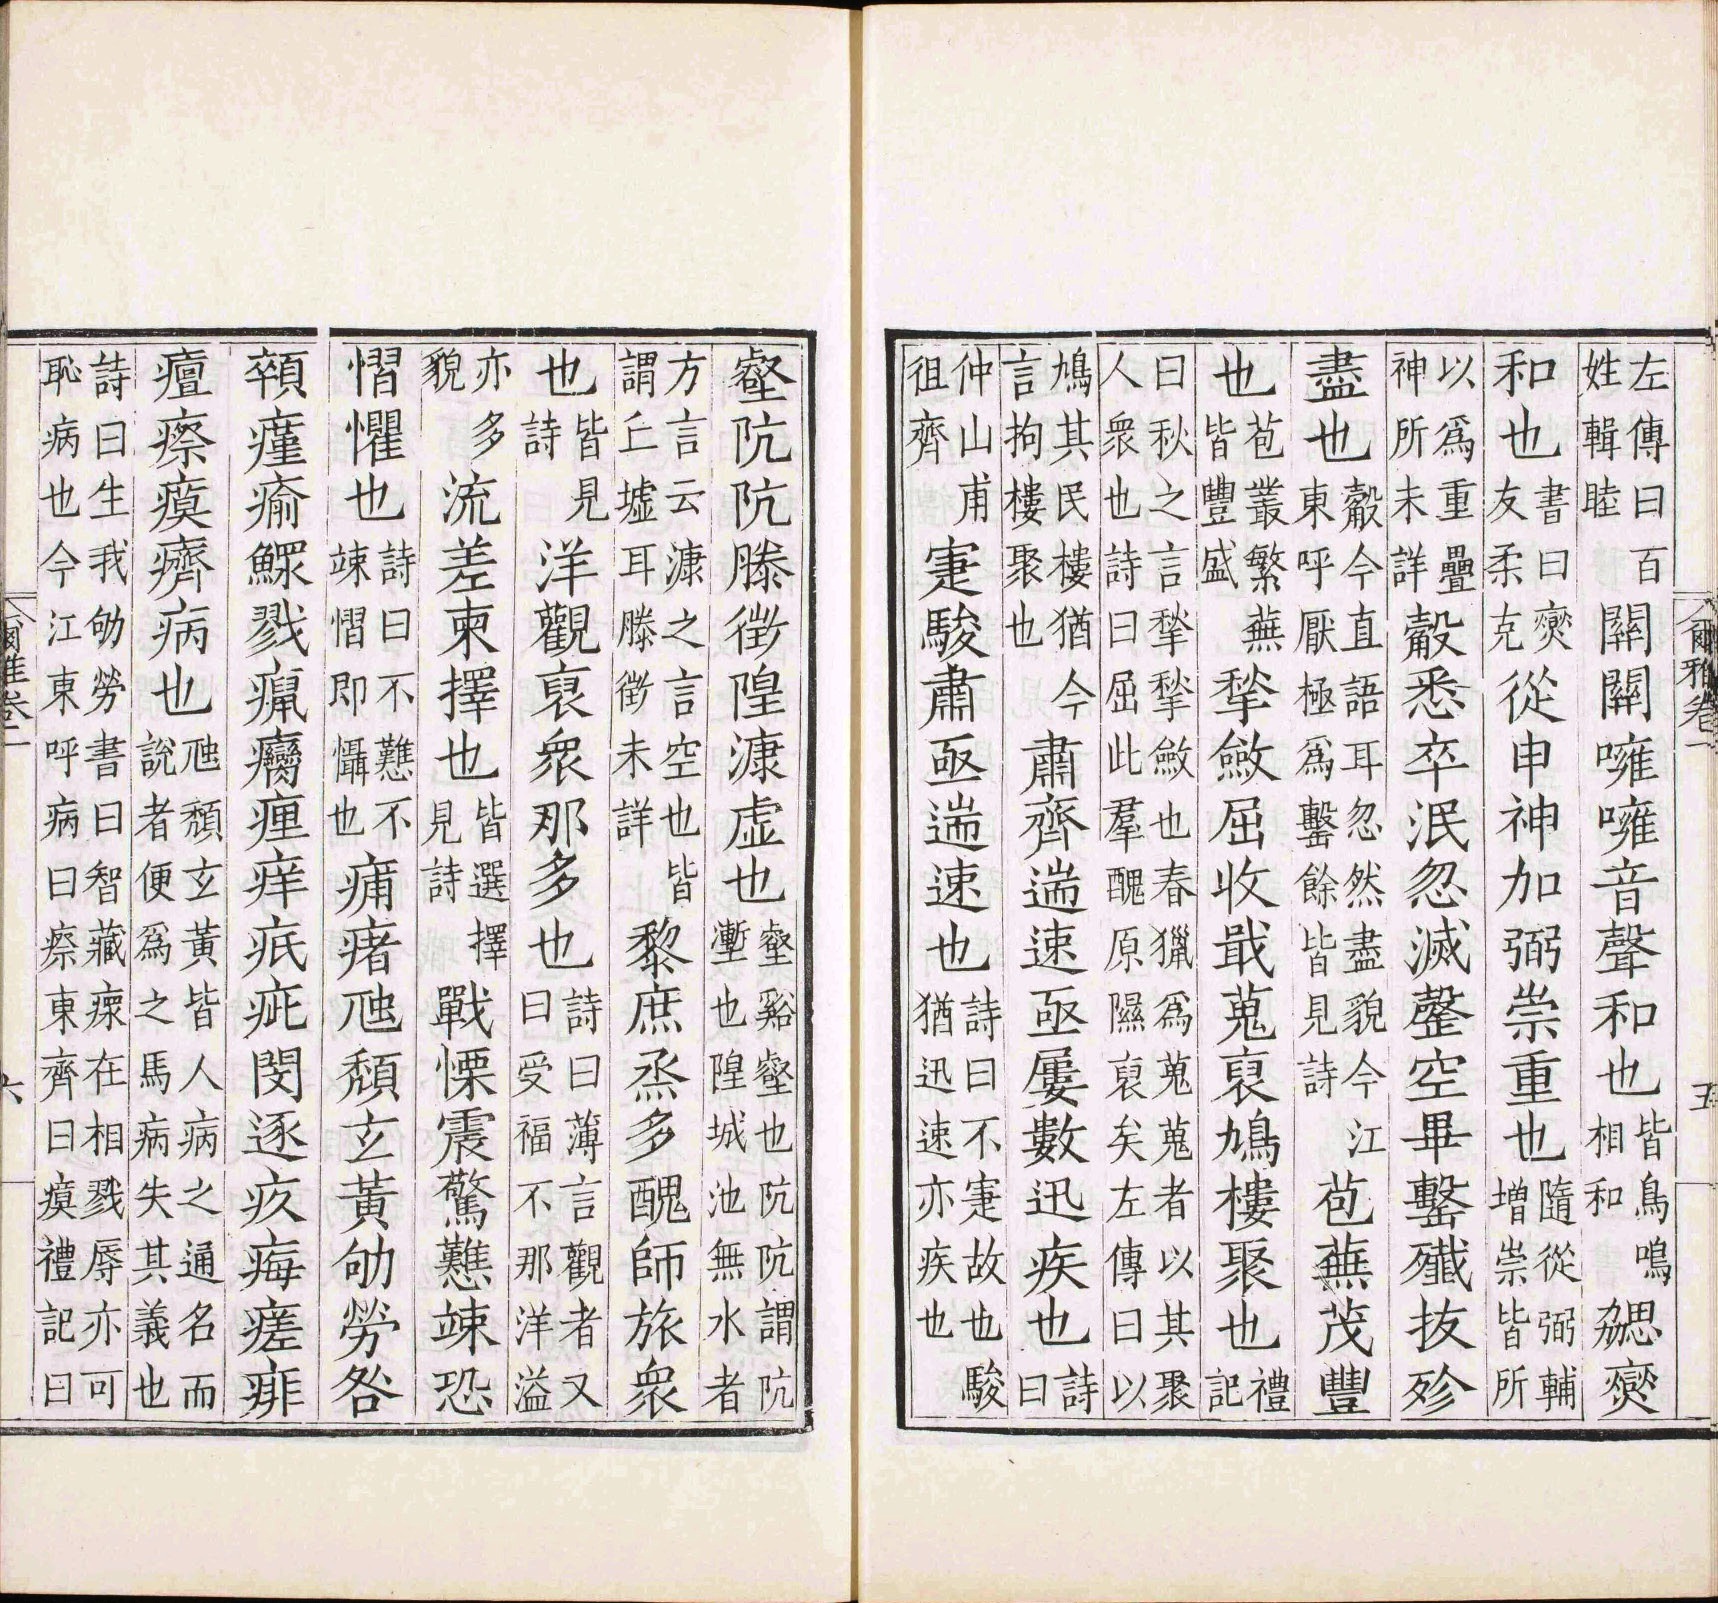 爾雅卷一　五
左傳曰百姓輯睦關關噰噰音聲和也皆鳥鳴相和勰燮
和也書曰燮友柔克從申神加弼崇重也隨從弼輔增崇皆所
以爲重疊神所未詳觳悉卒泯忽滅罄空畢罊殲拔殄
盡也觳今直語耳忽然盡貌今江東呼厭極爲罊餘皆見詩苞蕪茂豐
也苞叢繁蕪皆豐盛揫斂屈收戢蒐裒鳩樓聚也禮記
曰秋之言揫揫斂也春獵爲蒐蒐者以其聚人衆也詩曰屈此羣醜原隰裒矣左傳曰以
鳩其民樓猶今言拘樓聚也肅齊遄速亟屢數迅疾也詩曰
仲山甫徂齊寁駿肅亟遄速也詩曰不寁故也駿猶迅速亦疾也
壑阬阬滕徵隍漮虛也壑谿壑也阬阬謂阬壍也隍城池無水者
方言云漮之言空也皆謂丘墟耳滕徵未詳黎庶烝多醜師旅衆
也皆見詩洋觀裒衆那多也詩曰薄言觀者又曰受福不那洋溢
亦多貌流差柬擇也皆選擇見詩戰慄震驚戁竦恐
慴懼也詩曰不戁不竦慴即懾也痡瘏虺頹玄黃劬勞咎
顇瘽瘉鰥戮癙癵㾖痒疷疵閔逐疚痗瘥痱
㿊瘵瘼癠病也虺頹玄黃皆人病之通名而說者便爲之馬病失其義也
詩曰生我劬勞書曰智藏瘝在相戮辱亦可恥病也今江東呼病曰瘵東齊曰瘼禮記曰
爾雅卷一　六